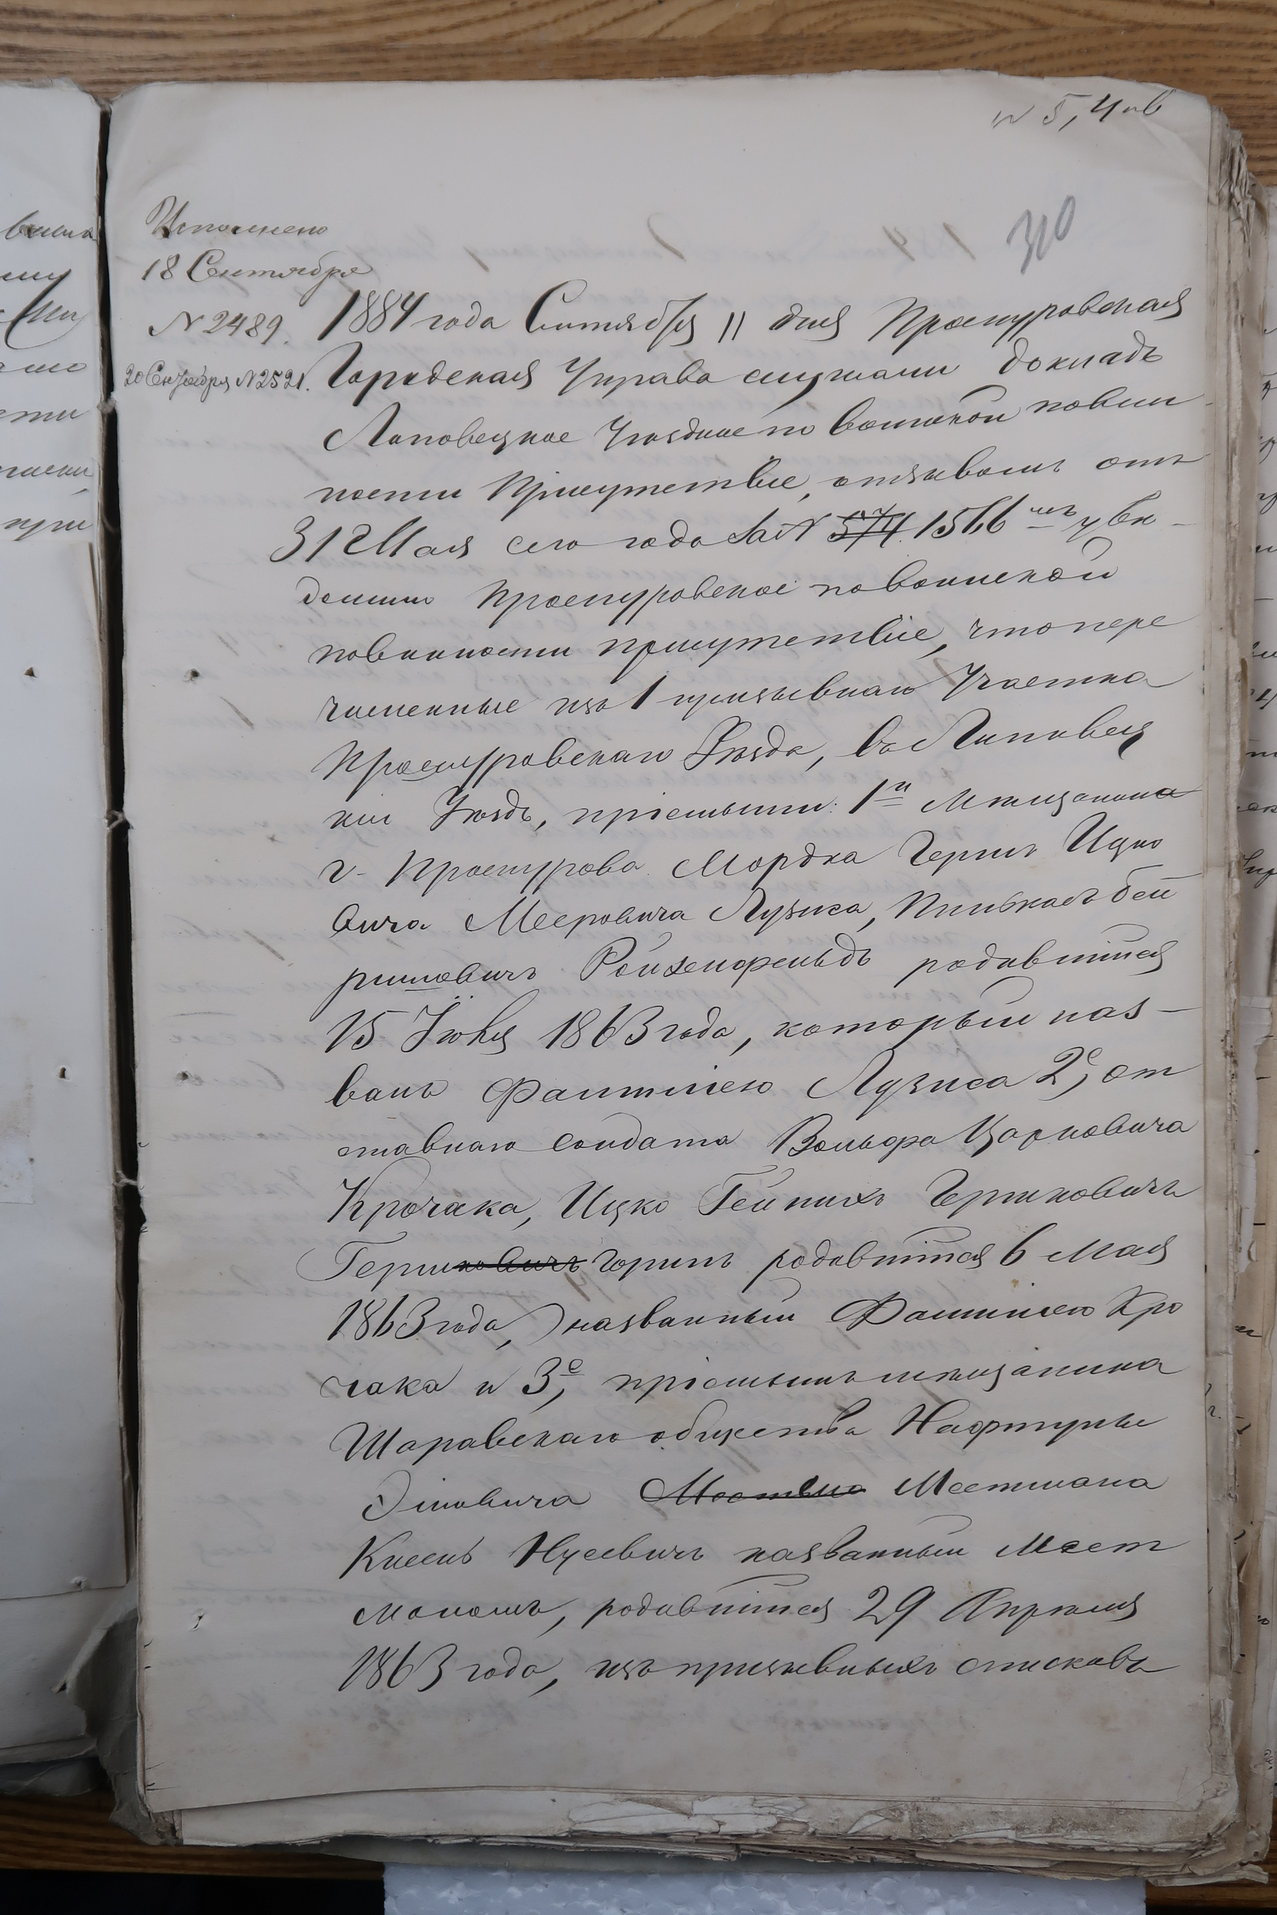 310
Исполнено
18 Сентября
N 2489.
20 Сентября N 2521.
1884 года Сентября 11 дня Проскуровская
Городская Управа слушали докладъ
Липовецкое Уѣздное по воинской повин
ности Присутствіе, отзывомъ отъ
31 Мая сего года за N 574 1566мъ увѣ-
домило Проскуровское по воинской
повинности присутствіе, что пере
численные изъ 1 призывнаго Участка
Проскуровскаго Уѣзда, въ Липовец
кій Уѣздъ, пріемыши: 1й Мѣщанина
г. Проскурова Мордка Герша Ицко
вича Мееровича Лузиса, Пинькасъ Бей
ришовичъ Ройзенфельдъ родившійся
15 Іюня 1863 года, который наз-
ванъ фамиліею Лузиса 2е, от
ставнаго солдата Вольфа Царковича
Крочака, Ицко Гейнихъ Гершковичъ
Гершковичъ Горинъ родившійся 6 Мая
1863 года, названный Фамиліею Кро
чака и 3е, пріемышъ мѣщанина
Шаравскаго общества Нафтулы
Эліовича Местмана
Кисель Нусевичъ названный Мест
маномъ, родившійся 29 Апрѣля
1863 года, изъ призывныхъ списковъ